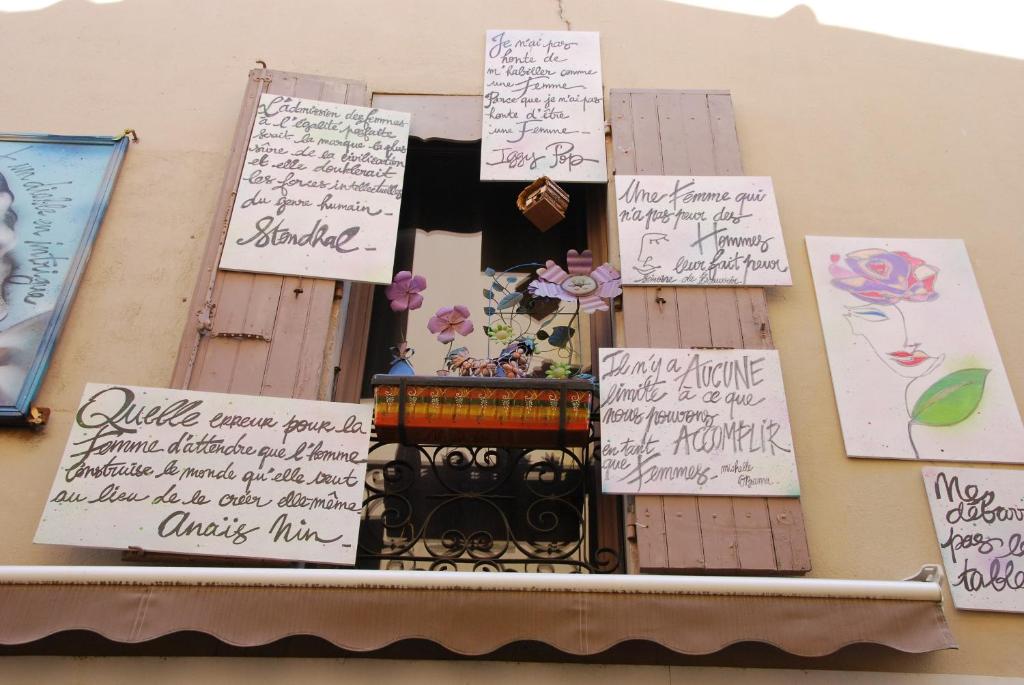 Je n'ai pas
honte de
m'habiller comme
une Femme
Parce que je n'ai pas
honte d'être
une Femme_
Iggy Pop
L'admission des femmes
à l'égalité parfaite
serait la marque la plus
sûre de la civilisation
et elle doublerait
les forces intellectuelles
du genre humain_
Stendhal_
Une Femme qui
n'a pas peur des
Hommes
leur fait peur
Simone de Beauvoir
Il n'y a AUCUNE
limite à ce que
nous pouvons
ACCOMPLIR
en tant
que Femmes_
Michelle
Obama
Quelle erreur pour la
Femme d'attendre que l'homme
construise le monde qu'elle veut
au lieu de le créer elle-même_
Anaïs Nin_